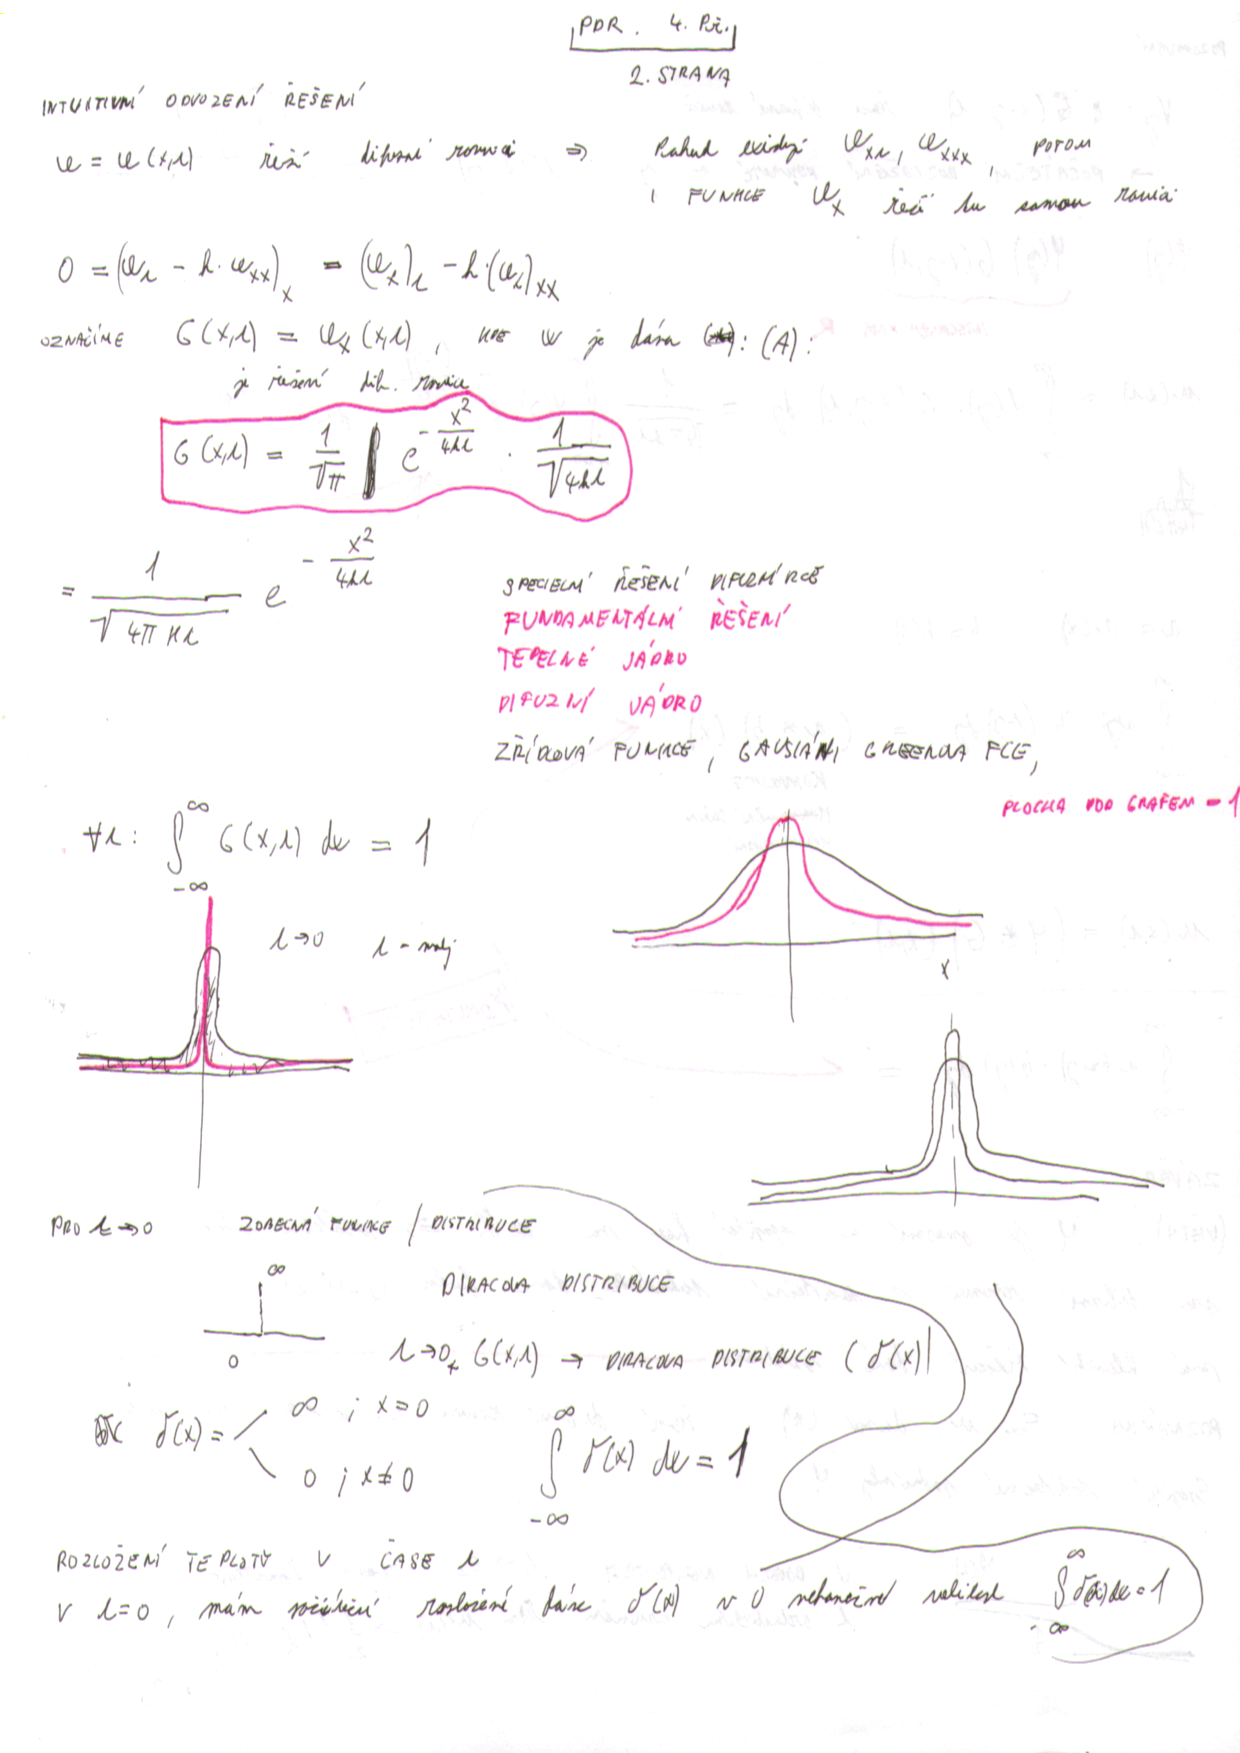 PDR. 4. Př.
2. STRANA
INTUITIVNÍ ODVOZENÍ ŘEŠENÍ
w = w(x,t) řeší difusní rovnici ⇒ Pokud existují w_xt, w_xxx, POTOM
I FUNKCE w_x řeší tu samou rovnici
0 = (w_t - k·w_xx)_x = (w_x)_t - k·(w_x)_xx
OZNAČÍME G(x,t) = w_x(x,t), KDE w je dána : (A):
je řešení dif. rovnice
G(x,t) = 1/√π e^(-x²/4kt) · 1/√(4kt)
= 1/√(4πkt) e^(-x²/4kt)
SPECIELNÍ ŘEŠENÍ DIFUZNÍ RCE
FUNDAMENTÁLNÍ ŘEŠENÍ
TEPELNÉ JÁDRO
DIFUZNÍ JÁDRO
ZŘÍDLOVÁ FUNKCE, GAUSIÁN, GREENOVA FCE,
PLOCHA POD GRAFEM = 1
∀t: ∫_{-∞}^{∞} G(x,t) dx = 1
t→0 t - malý
x
PRO t→0 ZOBECNÁ FUNKCE / DISTRIBUCE
∞
DIRACOVA DISTRIBUCE
0
t→0₊ G(x,t) → DIRACOVA DISTRIBUCE (δ(x)|
δ(x) = ∞ ; x=0
0 ; x≠0
∫_{-∞}^{∞} δ(x) dx = 1
ROZLOŽENÍ TEPLOTY V ČASE t
V t=0, mám počáteční rozložení dáno δ(x) v 0 nekonečné velikost ∫_{-∞}^{∞} δ(x)dx = 1